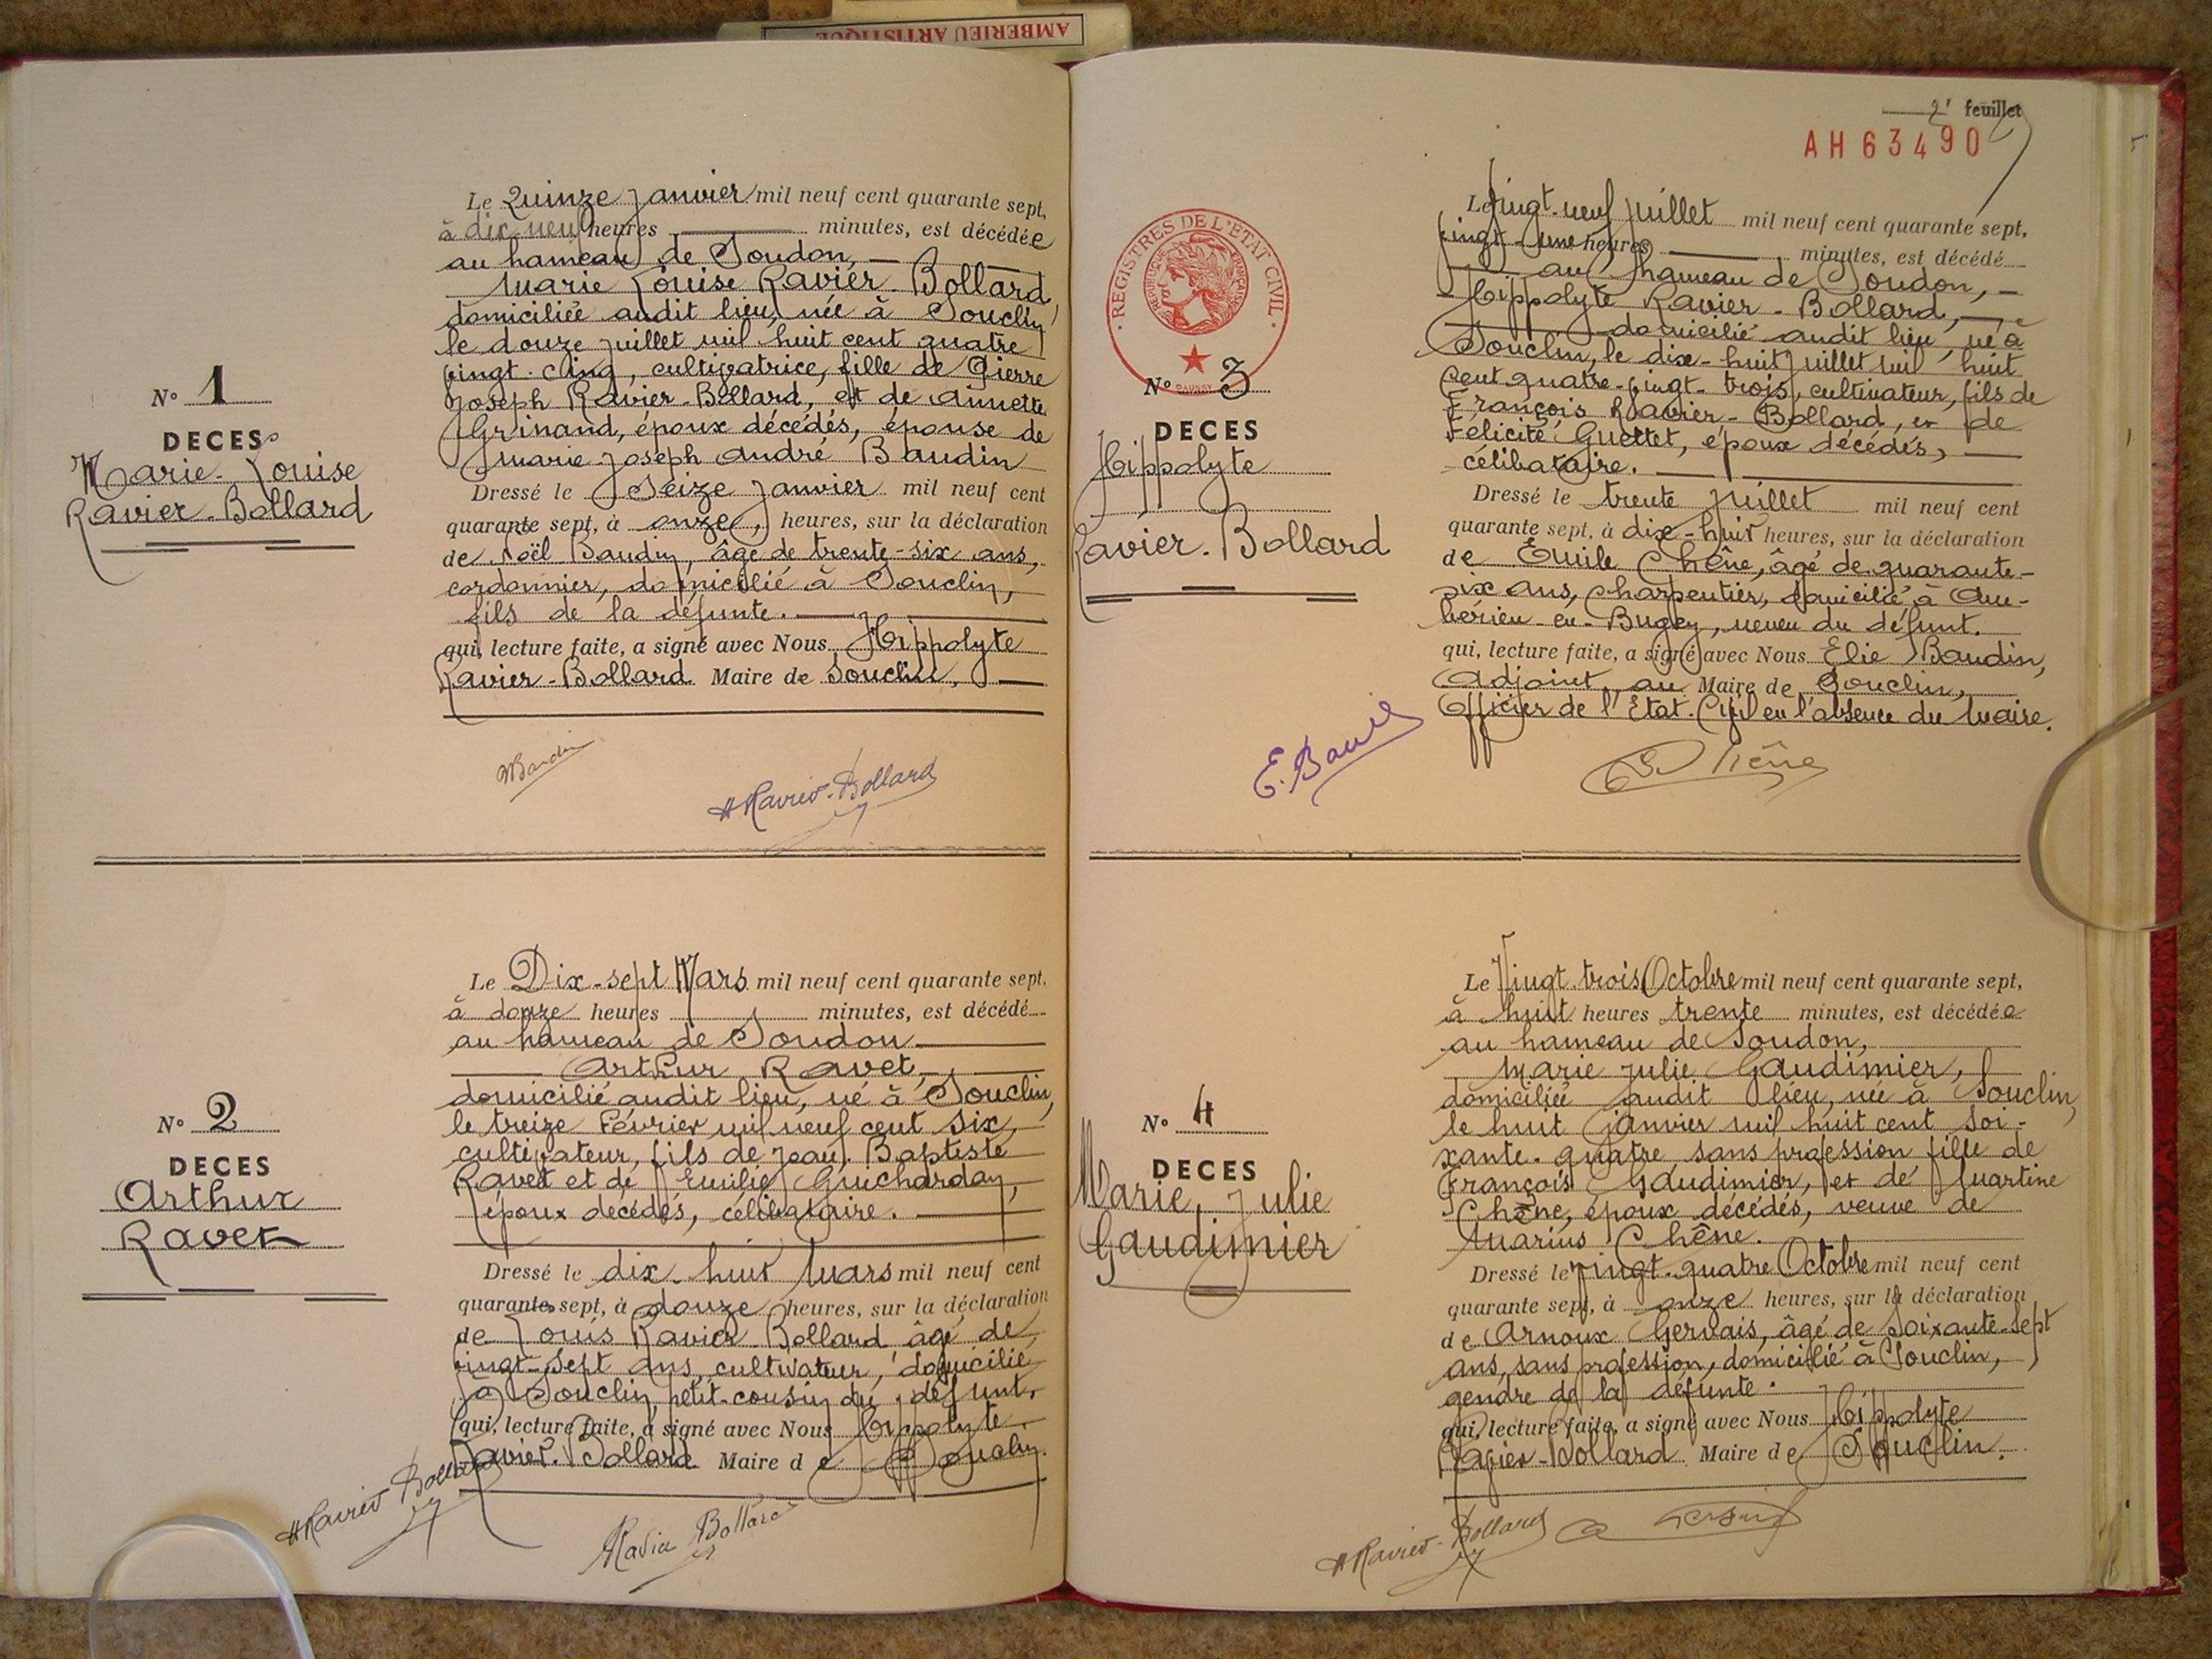 AMBERIEU ARTISTIQUE
Le Quinze Janvier mil neuf cent quarante sept,
à dix neuf heures minutes, est décédée
au hameau de Soudon,
Marie Louise Ravier-Bollard
domiciliée audit lieu, née à Souclin,
le douze juillet mil huit cent quatre
vingt-cinq, cultivatrice, fille de Pierre
Joseph Ravier-Bollard, et de Annette
Grinand, époux décédés, épouse de
Marie-Joseph André Baudin
N° 1
DECES
Marie-Louise
Ravier-Bollard
Dressé le Seize Janvier mil neuf cent
quarante sept, à onze, heures, sur la déclaration
de Noël Baudin, âgé de trente-six ans,
cordonnier, domicilié à Souclin,
fils de la défunte.
qui, lecture faite, a signé avec Nous Hippolyte
Ravier-Bollard Maire de Souclin,
NBaudin
HRavier-Bollard
Le Dix-sept Mars mil neuf cent quarante sept,
à douze heures minutes, est décédé
au hameau de Soudon
Arthur Ravet,
domicilié audit lieu, né à Souclin,
le treize Février mil neuf cent six,
cultivateur, fils de Jean-Baptiste
Ravet et de Emilie Guichardan,
époux décédés, célibataire.
N° 2
DECES
Arthur
Ravet
Dressé le dix-huit Mars mil neuf cent
quarante sept, à douze heures, sur la déclaration
de Louis Ravier-Bollard âgé de
vingt-sept ans, cultivateur, domicilié
à Souclin, petit-cousin du défunt,
qui, lecture faite, a signé avec Nous Hippolyte
Ravier-Bollard Maire de Souclin.
HRavier-Bollard
Ravier Bollard
2e feuillet
AH 63490
REGISTRES DE L'ETAT CIVIL
REPUBLIQUE FRANÇAISE
DAUSSY
Le vingt-neuf juillet mil neuf cent quarante sept,
vingt-une heures minutes, est décédé
au hameau de Soudon,
Hippolyte Ravier-Bollard,
domicilié audit lieu, né à
Souclin, le dix-huit juillet mil huit
cent quatre-vingt-trois, cultivateur, fils de
François Ravier-Bollard, et de
Félicité Guettet, époux décédés,
célibataire.
N° 3
DECES
Hippolyte
Ravier-Bollard
Dressé le trente juillet mil neuf cent
quarante sept, à dix-huit heures, sur la déclaration
de Emile Chêne, âgé de quarante-
six ans, charpentier, domicilié à Am-
bérieu-en-Bugey, neveu du défunt.
qui, lecture faite, a signé avec Nous Elie Baudin,
Adjoint au Maire de Souclin,
Officier de l'Etat-Civil en l'absence du Maire.
E. Baudin
E Chêne
Le Vingt-trois Octobre mil neuf cent quarante sept,
à huit heures trente minutes, est décédée
au hameau de Soudon,
Marie Julie Gaudimier,
domiciliée audit lieu, née à Souclin,
le huit janvier mil huit cent soi-
xante-quatre sans profession fille de
François Gaudimier, et de Martine
Chêne, époux décédés, veuve de
Marius Chêne.
N° 4
DECES
Marie, Julie
Gaudimier
Dressé le Vingt-quatre Octobre mil neuf cent
quarante sept, à onze heures, sur la déclaration
de Arnoux Gervais, âgé de soixante-sept
ans, sans profession, domicilié à Souclin,
gendre de la défunte.
qui, lecture faite, a signé avec Nous Hippolyte
Ravier-Bollard Maire de Souclin.
HRavier-Bollard